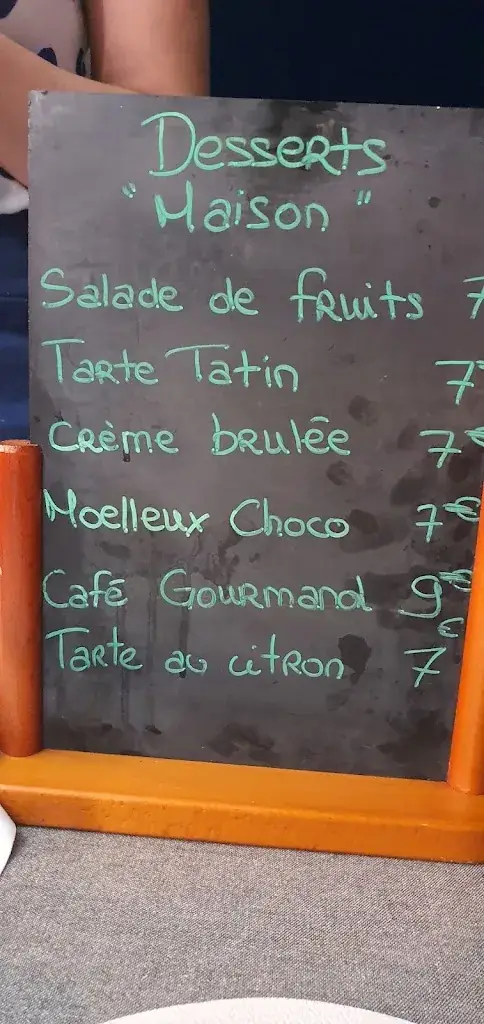 Desserts
"Maison"
Salade de fruits 7
Tarte Tatin 7€
Crème brulée 7€
Moelleux Choco 7€
Café Gourmand 9€
Tarte au citron 7€